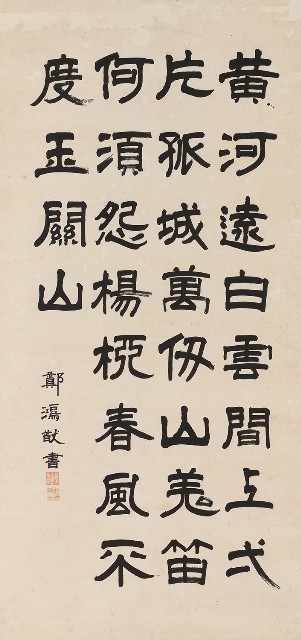 黃河遠白雲間上弌
片孤城萬仞山羌笛
何須怨楊柳春風不
度玉關山
鄭鴻猷書